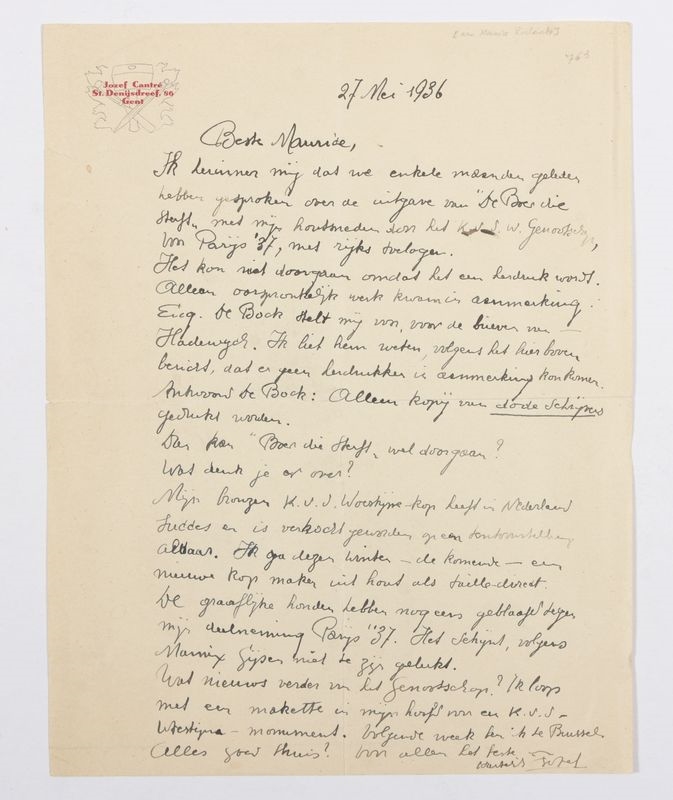 Jozef Cantré
St. Denijsdreef, 86
Gent
763
27 Mei 1936
Beste Maurice,
Ik herinner mij dat we enkele maanden geleden
hebben gesproken over de uitgave van "De Boer die
sterft" met mijn houtsneden door het K.v.d.W. Genootschap,
voor Parijs '37, met rijks toelagen.
Het kon niet doorgaan omdat het een herdruk wordt.
Alleen oorspronkelijk werk kwam in aanmerking.
Eug. De Bock stelt mij voor, voor de brieven van
Hadewych. Ik liet hem weten, volgens het hierboven
bericht, dat er geen herdrukken in aanmerking konkomen.
Antwoord De Bock: Alleen kopij van doode schrijvers
gedrukt worden.
Dan kan "Boer die sterft" wel doorgaan?
Wat denk je er over?
Mijn bronzen K.v.d. Woestijne-kop heeft in Nederland
succes en is verkocht geworden op een tentoonstelling
aldaar. Ik ga dezen winter - de komende - een
nieuwe kop maken uit hout als taille-directe.
De graaflijke honden hebben nog eens geblaft tegen
mijn deelneming Parijs "37. Het schijnt, volgens
Marnix Gijsen niet te zijn gelukt.
Wat nieuws verder van het Genootschap? Ik loop
met een makette in mijn hoofd voor een K.v.d.-
Woestijne-monument. Volgende week ben ik te Brussel
Alles goed thuis? Voor allen het beste
Jozef